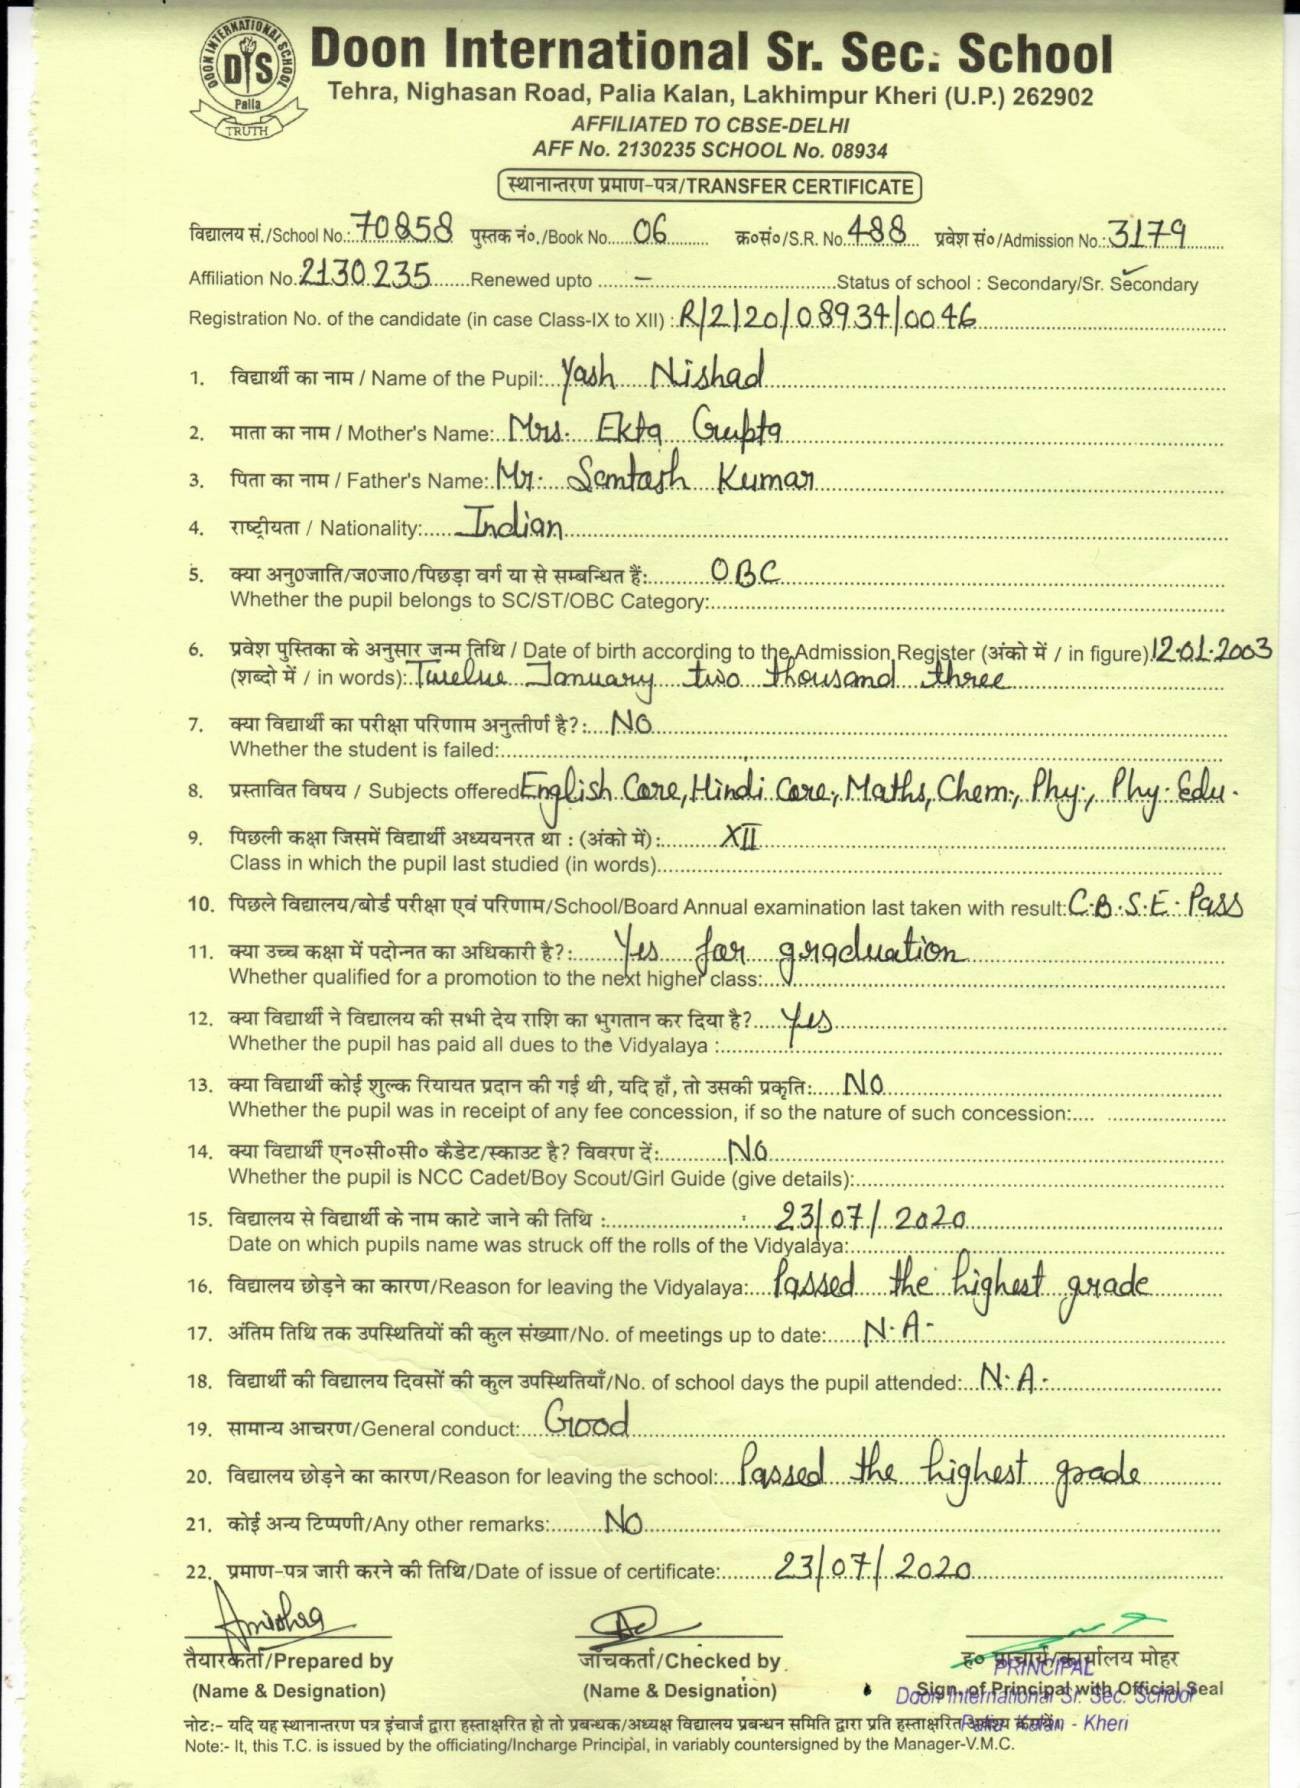 DOON INTERNATIONAL SCHOOL
DIS
Palia
TRUTH
Doon International Sr. Sec. School
Tehra, Nighasan Road, Palia Kalan, Lakhimpur Kheri (U.P.) 262902
AFFILIATED TO CBSE-DELHI
AFF No. 2130235 SCHOOL No. 08934
स्थानान्तरण प्रमाण-पत्र/TRANSFER CERTIFICATE
विद्यालय सं./School No.: 70858 पुस्तक नं०./Book No. 06 क्र०सं०/S.R. No. 488 प्रवेश सं०/Admission No.: 3179
Affiliation No. 2130235 Renewed upto – Status of school : Secondary/Sr. Secondary
Registration No. of the candidate (in case Class-IX to XII) : R/2/20/08934/0046
1. विद्यार्थी का नाम / Name of the Pupil: Yash Nishad
2. माता का नाम / Mother's Name: Mrs. Ekta Gupta
3. पिता का नाम / Father's Name: Mr. Santosh Kumar
4. राष्ट्रीयता / Nationality: Indian
5. क्या अनु०जाति/ज०जा०/पिछड़ा वर्ग या से सम्बन्धित हैं: OBC
Whether the pupil belongs to SC/ST/OBC Category:
6. प्रवेश पुस्तिका के अनुसार जन्म तिथि / Date of birth according to the Admission Register (अंको में / in figure) 12.01.2003
(शब्दो में / in words): Twelve January two thousand three
7. क्या विद्यार्थी का परीक्षा परिणाम अनुत्तीर्ण है?: NO
Whether the student is failed:
8. प्रस्तावित विषय / Subjects offered English Core, Hindi Core, Maths, Chem., Phy., Phy. Edu.
9. पिछली कक्षा जिसमें विद्यार्थी अध्ययनरत था : (अंको में): XII
Class in which the pupil last studied (in words)
10. पिछले विद्यालय/बोर्ड परीक्षा एवं परिणाम/School/Board Annual examination last taken with result: C.B.S.E. Pass
11. क्या उच्च कक्षा में पदोन्नत का अधिकारी है?: Yes for graduation
Whether qualified for a promotion to the next higher class:
12. क्या विद्यार्थी ने विद्यालय की सभी देय राशि का भुगतान कर दिया है? Yes
Whether the pupil has paid all dues to the Vidyalaya :
13. क्या विद्यार्थी कोई शुल्क रियायत प्रदान की गई थी, यदि हाँ, तो उसकी प्रकृति: NO
Whether the pupil was in receipt of any fee concession, if so the nature of such concession:
14. क्या विद्यार्थी एन०सी०सी० कैडेट/स्काउट है? विवरण दें: No
Whether the pupil is NCC Cadet/Boy Scout/Girl Guide (give details):
15. विद्यालय से विद्यार्थी के नाम काटे जाने की तिथि : 23/07/2020
Date on which pupils name was struck off the rolls of the Vidyalaya:
16. विद्यालय छोड़ने का कारण/Reason for leaving the Vidyalaya: Passed the highest grade
17. अंतिम तिथि तक उपस्थितियों की कुल संख्या/No. of meetings up to date: N.A.
18. विद्यार्थी की विद्यालय दिवसों की कुल उपस्थितियाँ/No. of school days the pupil attended: N.A.
19. सामान्य आचरण/General conduct: Good
20. विद्यालय छोड़ने का कारण/Reason for leaving the school: Passed the highest grade
21. कोई अन्य टिप्पणी/Any other remarks: No
22. प्रमाण-पत्र जारी करने की तिथि/Date of issue of certificate: 23/07/2020
तैयारकर्ता/Prepared by जाँचकर्ता/Checked by ह० प्राचार्य/कार्यालय मोहर
PRINCIPAL
(Name & Designation) (Name & Designation) Sign. of Principal with Official Seal
Doon International Sr. Sec. School
Palia Kalan - Kheri
नोट:- यदि यह स्थानान्तरण पत्र इंचार्ज द्वारा हस्ताक्षरित हो तो प्रबन्धक/अध्यक्ष विद्यालय प्रबन्धन समिति द्वारा प्रति हस्ताक्षरित
Note:- It, this T.C. is issued by the officiating/Incharge Principal, in variably countersigned by the Manager-V.M.C.